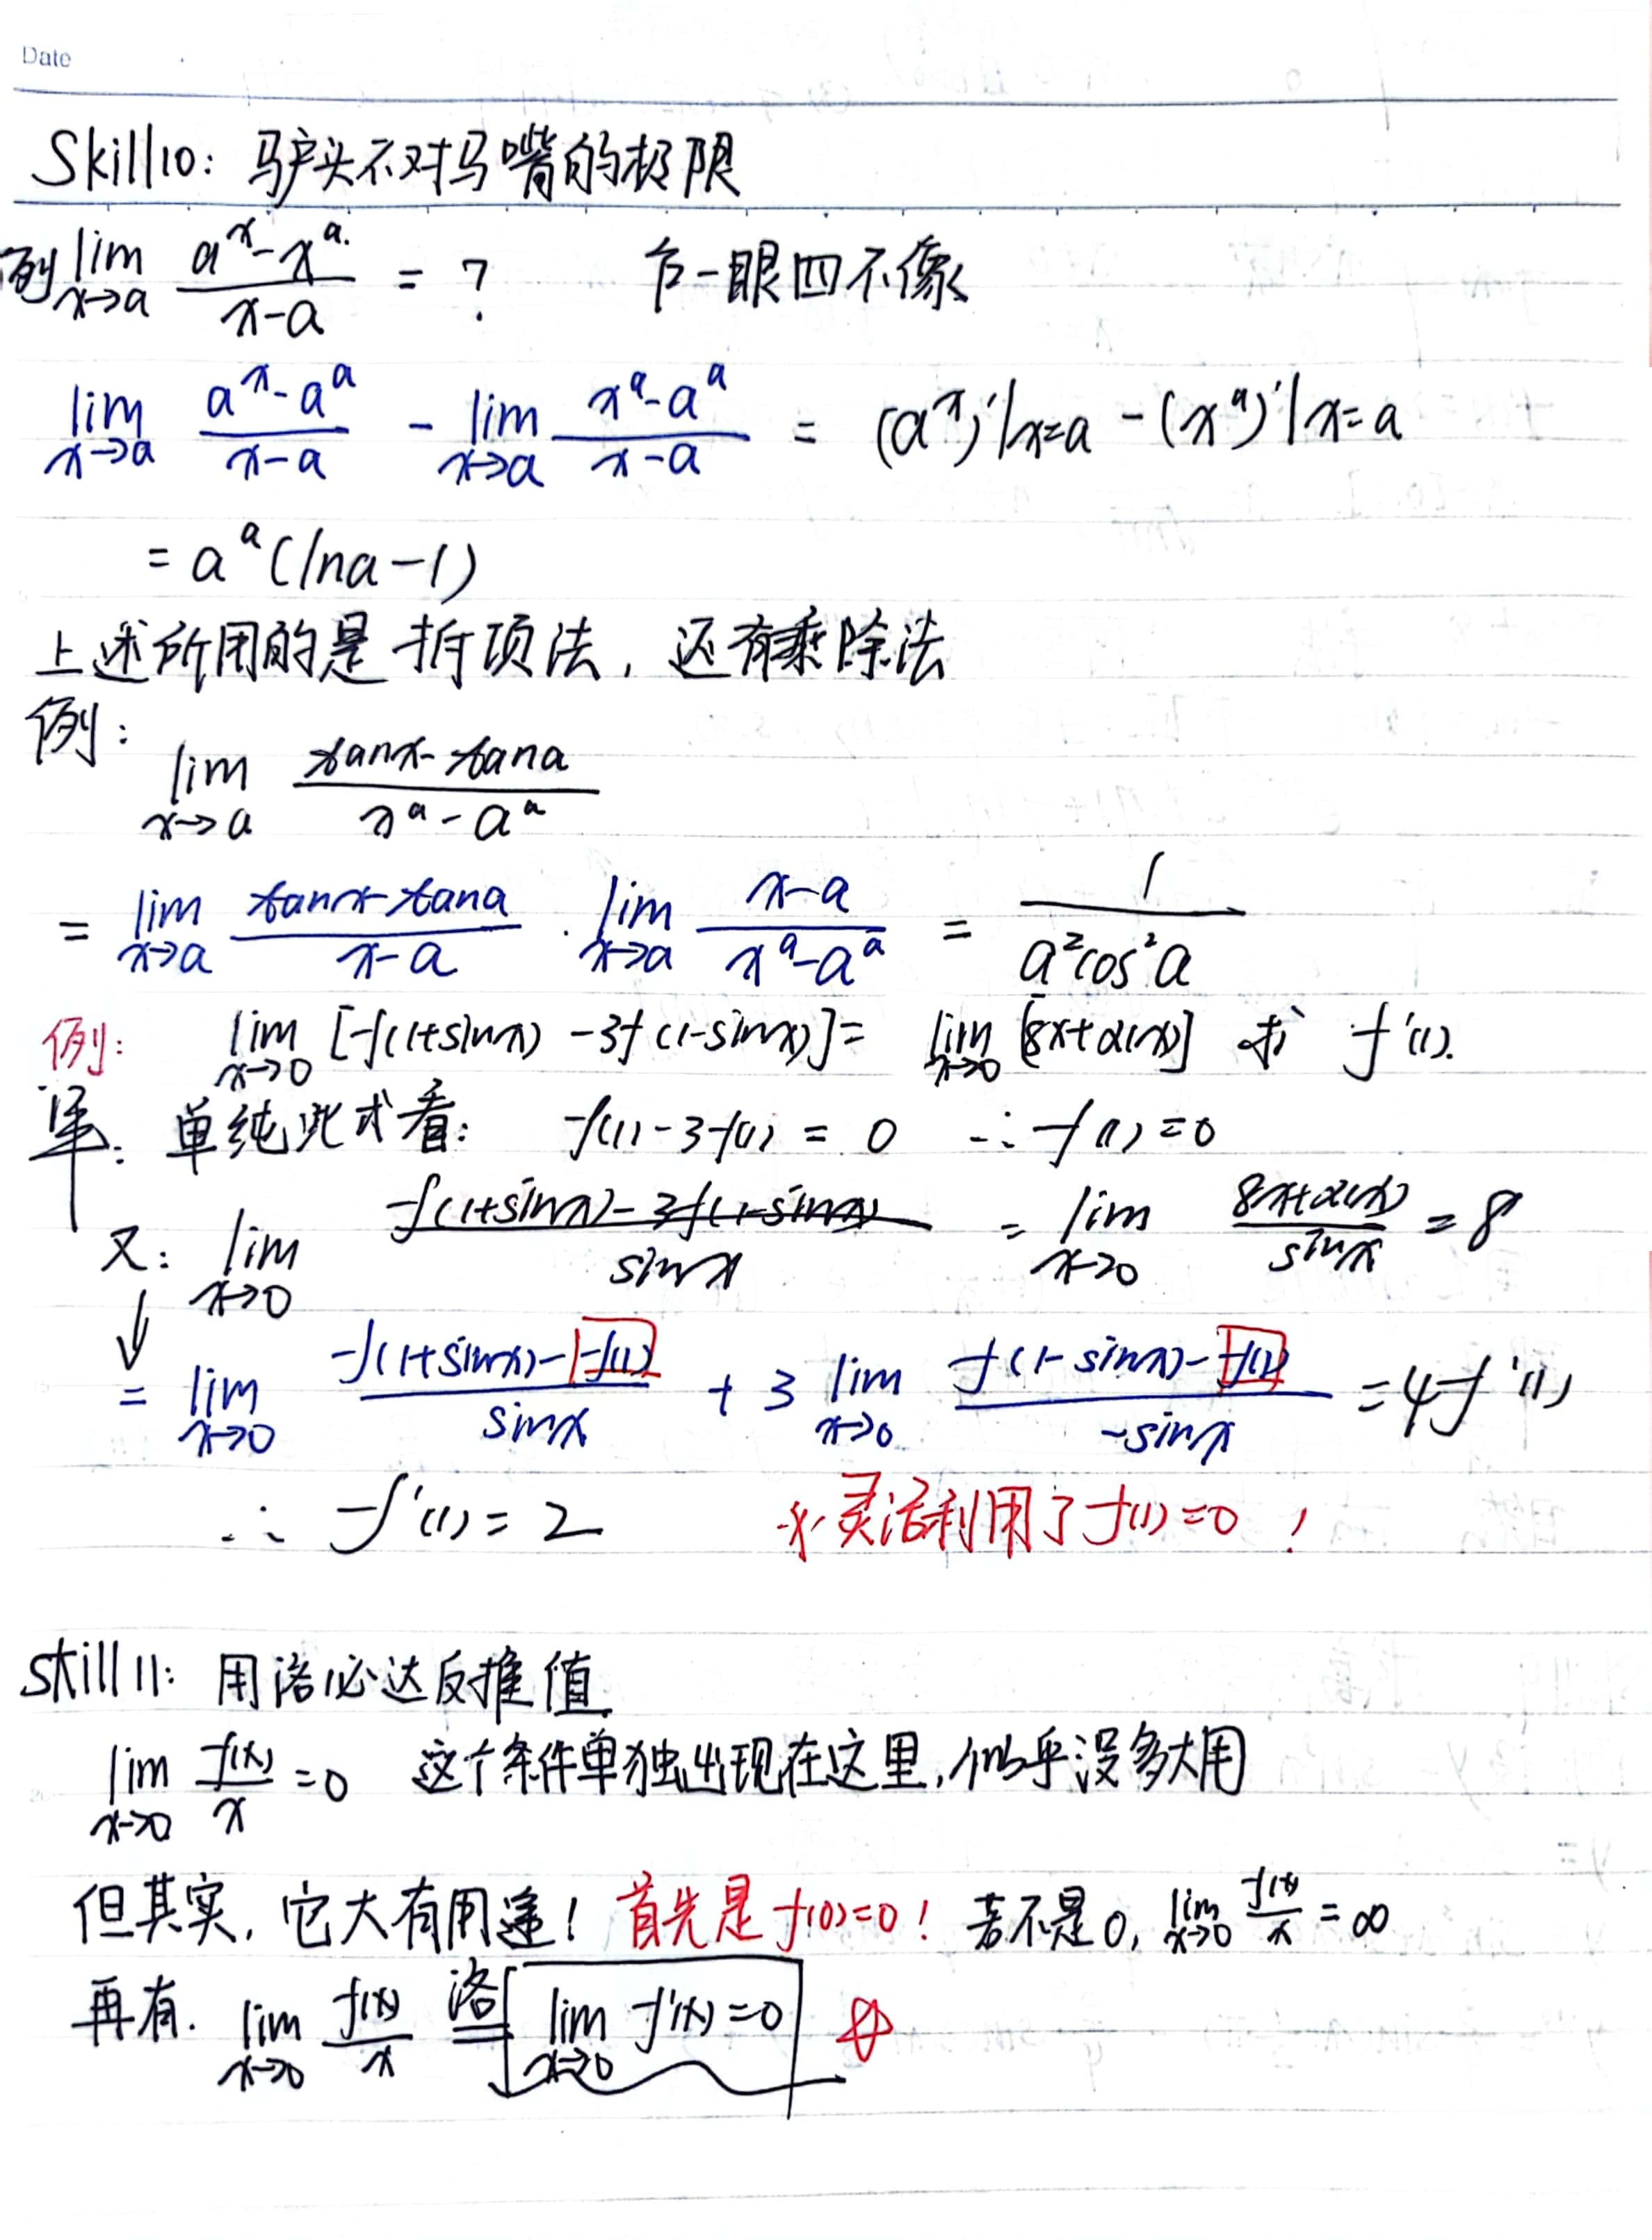 Date
Skill10: 驴头不对马嘴的极限
例 lim_{x→a} (a^x - x^a)/(x-a) = ? 乍一眼四不像
lim_{x→a} (a^x - a^a)/(x-a) - lim_{x→a} (x^a - a^a)/(x-a) = (a^x)'|x=a - (x^a)'|x=a
= a^a (lna - 1)
上述所用的是拆项法, 还有乘除法
例:
lim_{x→a} (tanx - tana)/(x^a - a^a)
= lim_{x→a} (tanx - tana)/(x-a) · lim_{x→a} (x-a)/(x^a - a^a) = 1/(a^2cos^2a)
例: lim_{x→0} [f(1+sinx) - 3f(1-sinx)] = lim_{x→0} [8x+α(x)] 求 f'(1).
解: 单纯此式看: f(1) - 3f(1) = 0 ∴ f(1) = 0
又: lim_{x→0} (f(1+sinx) - 3f(1-sinx))/sinx = lim_{x→0} (8x+α(x))/sinx = 8
↓
= lim_{x→0} (f(1+sinx) - f(1))/sinx + 3 lim_{x→0} (f(1-sinx) - f(1))/(-sinx) = 4f'(1)
∴ f'(1) = 2 ※灵活利用了f(1)=0 !
skill11: 用洛必达反推值.
lim_{x→0} f(x)/x = 0 这个条件单独出现在这里,似乎没多大用
但其实, 它大有用途! 首先是f(0)=0! 若不是0, lim_{x→0} f(x)/x = ∞
再有. lim_{x→0} f(x)/x 洛= lim_{x→0} f'(x) = 0